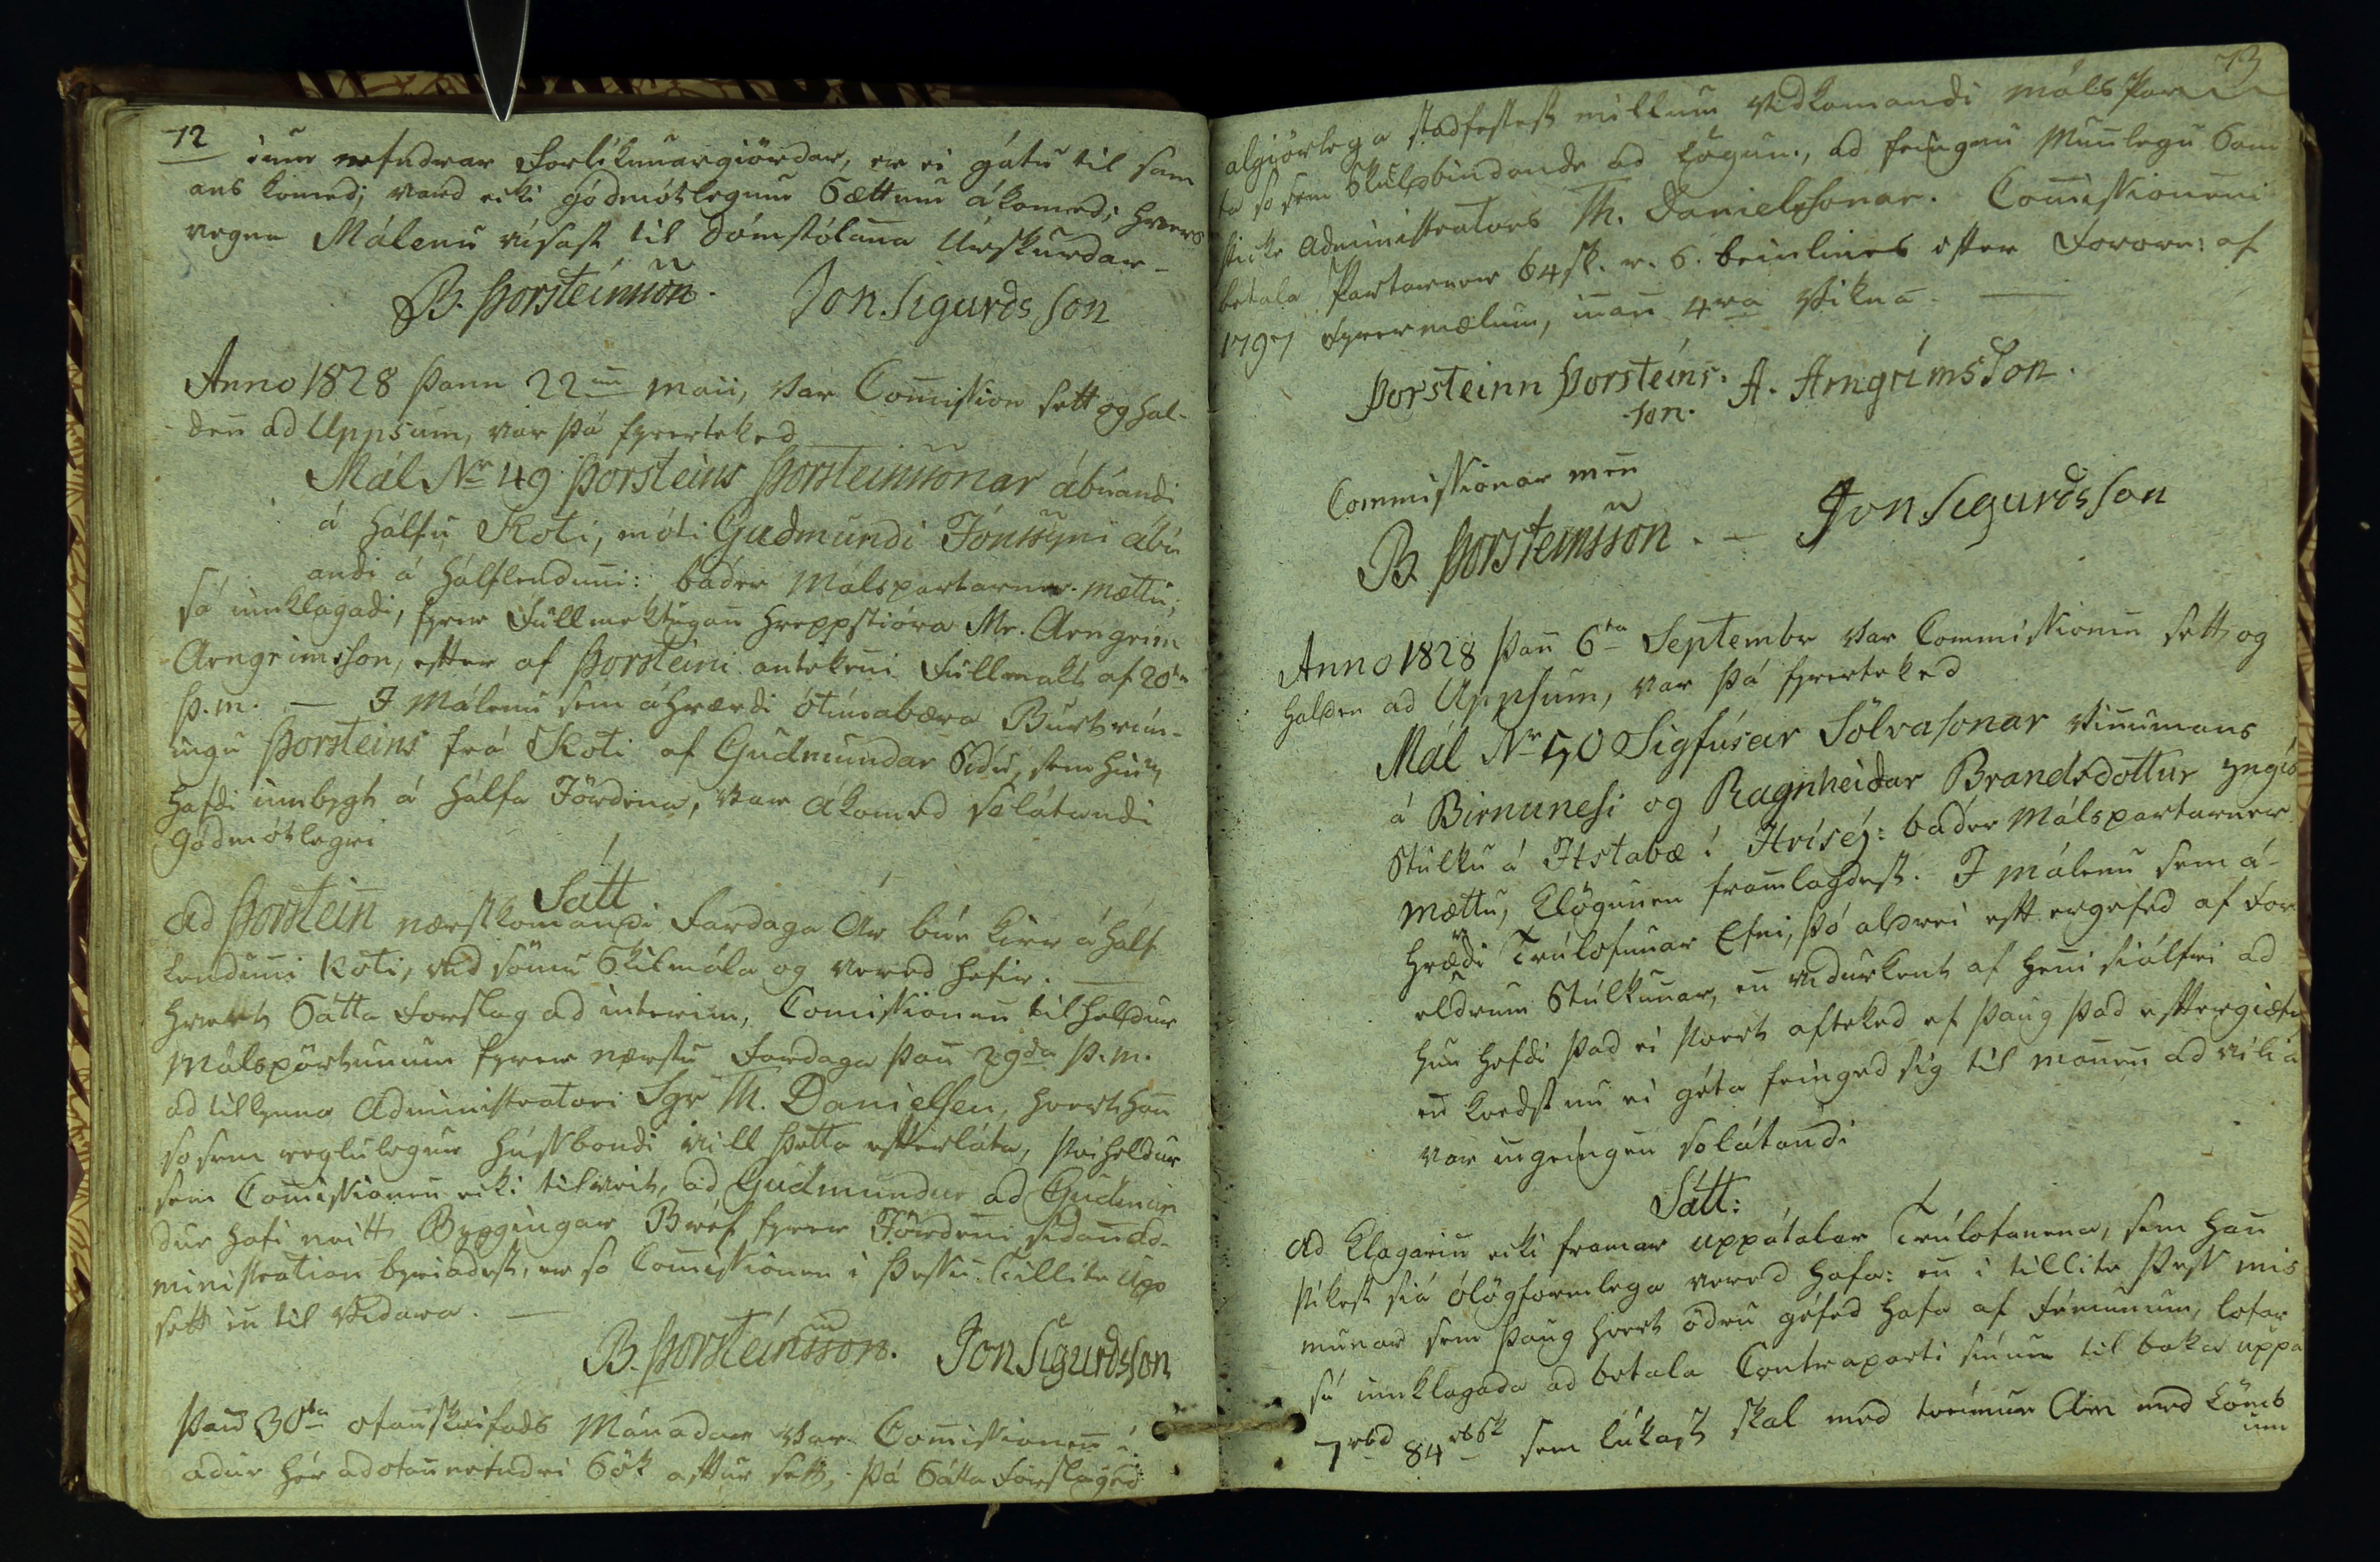 72
inn nefndrar Forlíkunargiördar, er ei gátu til sam
ans komed; vard ecki gódmótlegum Sættum ákomed; hvers
vegna Málenu vísast til Dómstólanna Úrskurdar –
B. Þorsteinsson. Jon. Sigurdsson
Anno 1828 Þann 22nn Maii, var Com̅ission sett og hal-
den̅ ad Uppsum, var þá fyrerteked
Mál No 49 Þorsteins Þorsteinssonar ábúandi
á hálfu Koti, móti Gudmundi Jónssyni ábú
andi á hálflendun̅i: báder Málspartarner mættu;
sá innklagadi, fyrer Fullmektugan̅ Hreppstióra Mr. Arngrím
Arngrimsson, efter af Þorsteini antekenni Fullmakt af 20ta
þ.m. — I Málenu sem áhrærdi ótímabæra Burtvís-
ingu Þorsteins frá Koti af Gudmundar Sídu, sem hinn
hafdi innbygt á hálfa Jördena, var ákomed solátandi
gódmótlegri
Sátt
Ad Þorstein̅ næstkomandi Fardaga Ár búe kirr á hálf
lendun̅i Koti, vid sömu Skilmála og vered hefir. —
Hvert Sátta Forslag ad interim, Com̅issionen̅ tilheldur
Málspörtunum fyrer næstu Fardaga þan̅ 29da þ.m.
ad tilkynna Administratori Sgr Th. Danielsen, hvert han̅
so sem reglulegur Húsbondi vill þetta efterláta, því heldur
sem Com̅issionen̅ ecki tilveit, ad Gudmundur ad Gudmun
dur hafi neitt Byggingar Bref fyrer Jördun̅i sidan̅ Ad-
ministration byriadest, er so Com̅issionen i þessu Tillite Upp
sett in̅ til Vidara. —
B. Þorsteinsson. Jon Sigurdsson
Þan̅ 30ta ofanskrifads Mánadar var Com̅issionen̅ í
adur hér adofan̅ nefndri Sök aftur sett, þá Sátta Forslaged
73
algiörlega stadfestest millum vidkomandi máls Par
ta so sem Skuldbindande ad Lögum, ad feingnu Munlegu Sam
ticke Administrators Th. Danielssonar. Com̅issionen̅i
betala Partarner 64 sk. r. S. beinlines efter Forordn: af
1797 Fyrermælum, in̅an̅ 4ra Vikna. —
Þorsteinn Þorsteins- A. Arngrímsson.
-son.
Commissionar men̅
B. Þorsteinsson. — Jon Sigurdsson
Anno 1828 þan̅ 6ta Septembr var Commissionen̅ sett og
halden ad Uppsum, var þá fyrerteked
Mál No 50 Sigfúsar Sölvasonar Vin̅umans
á Birnunesi og Ragnheidar Brandsdottur yngis
Stulku á Ystabæ i Hrísej: báder Málspartarner
mættu, Klögunen fram̅lagdest. I málenu sem á-
hrærdi Trúlofunar Efni, þó aldrei eftergefed af For
eldrum Stúlkunar, en̅ vidurkent af hen̅i siálfri ad
hun hefdi þad ei þvert afteked ef þaug þad eftergiæfu
en̅ kvedst nu ei géta feinged sig til man̅en̅ ad vilia
var ingeingen solátandi
Sátt:
Ad Klagarin̅ ecki framar uppátalar Trúlofunena, sem han̅
þikest siá ólögformlega vered hafa: en̅ i tillite þess mis
munar sem þaug hvert ödru géfed hafa af Fémunum, lofar
sú innklagada ad betala Contraparti sínum til baka uppá
7rbd 84rbsk sem lúkast skal med tveimur Ám med Lömb
um